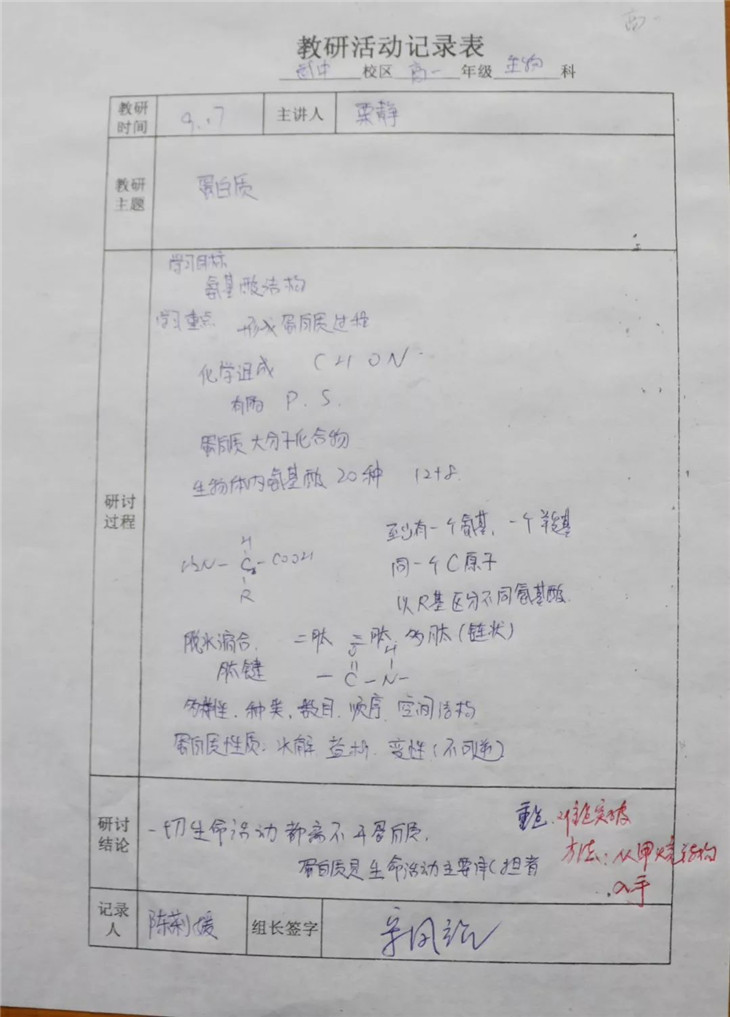 教研活动记录表
校区 高一 年级 生物 科
教研时间 9.17 主讲人 栗静
教研主题 蛋白质
学习目标
氨基酸结构
学习重点 形成蛋白质过程
化学组成 C H O N
有的 P. S.
蛋白质大分子化合物
生物体内氨基酸 20种 12+8
研讨过程
至少有一个氨基, 一个羧基
H
H2N - C - COOH
同一个C原子
R
以R基区分不同氨基酸.
脱水缩合. 二肽 三肽 多肽(链状)
O H
肽键 - C - N -
多样性. 种类. 数目. 顺序. 空间结构
蛋白质性质: 水解 盐析. 变性(不可逆)
研讨结论
一切生命活动都离不开蛋白质.
蛋白质是生命活动主要 担者
重点. 难点突破
方法: 从甲烷结构
入手
记录人 陈荆媛 组长签字